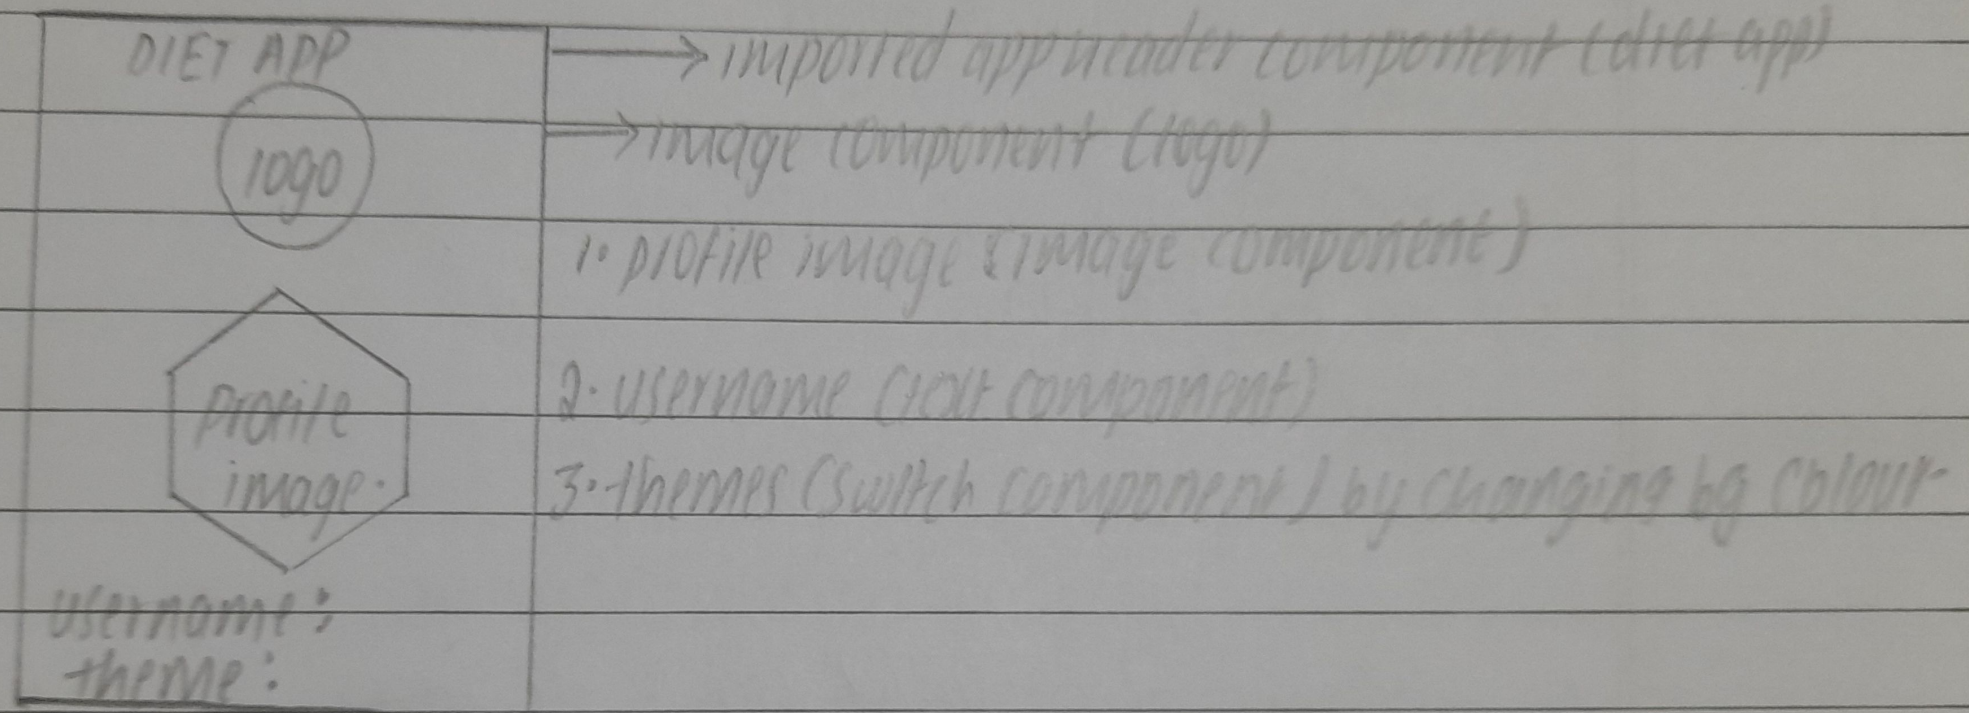 DIET APP
logo
profile
image.
username:
theme:
→ imported appheader component (diet app)
→ image component (logo)
1. profile image (image component)
2. username (text component)
3. themes (switch component) by changing bg colour.